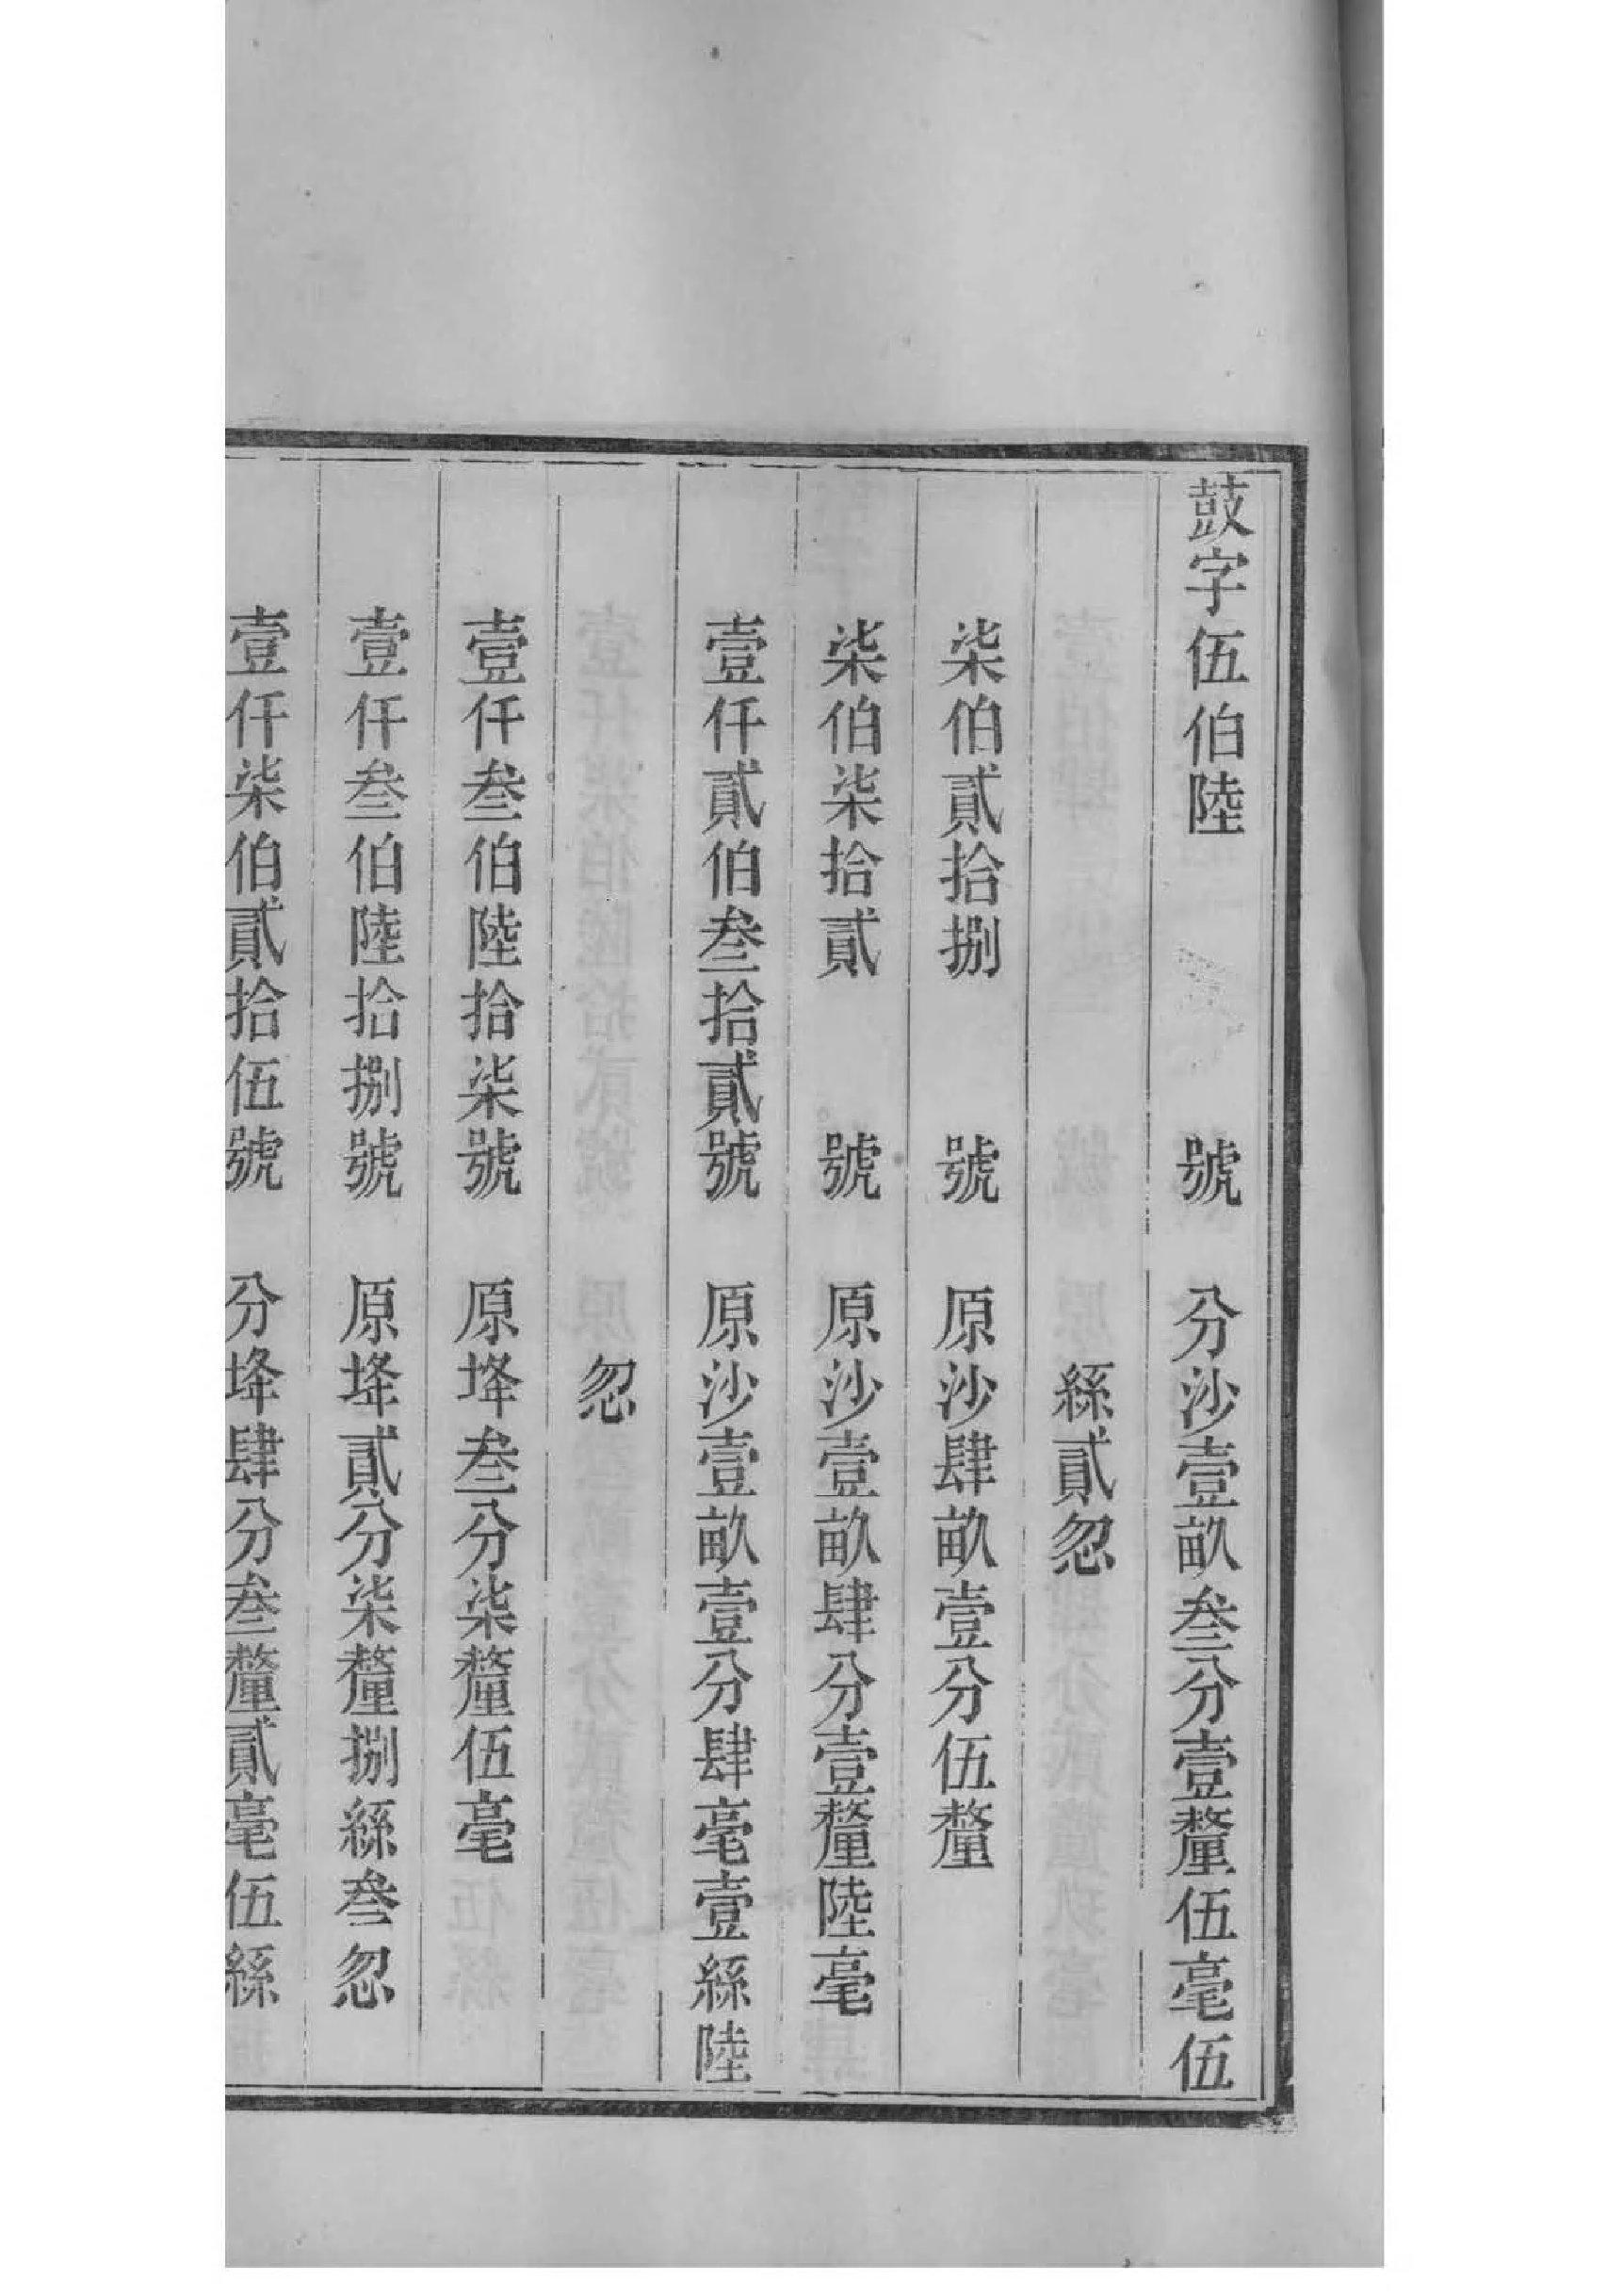 鼓字伍伯陸號 分沙壹畝叁分壹釐伍毫伍
絲貳忽
柒伯貳拾捌號 原沙肆畝壹分伍釐
柒伯柒拾貳號 原沙壹畝肆分壹釐陸毫
壹仟貳伯叁拾貳號 原沙壹畝壹分肆毫壹絲陸
忽
壹仟叁伯陸拾柒號 原埄叁分柒釐伍毫
壹仟叁伯陸拾捌號 原埄貳分柒釐捌絲叁忽
壹仟柒伯貳拾伍號 分埄肆分叁釐貳毫伍絲